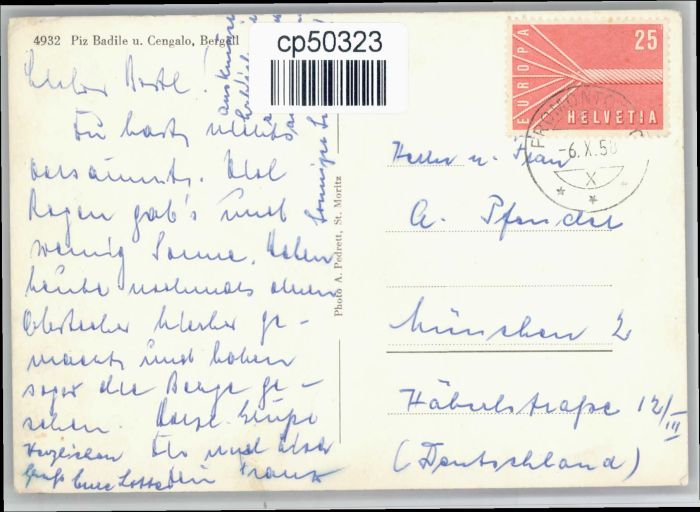 4932 Piz Badile u. Cengalo, Bergell
cp50323
EUROPA
25
HELVETIA
-6.X.58
X
Lieber Bertl!
Du hast nichts
versäumt. Viel
Regen gab's und
wenig Sonne. Haben
heute nochmals einen
Abstecher hierher ge-
macht und haben
sogar die Berge ge-
sehen. Herzl. Grüße
Dir und
Dein Franz
Herzlichen
Gruß Eure Lotte
Photo A. Pedrett, St. Moritz
Herrn u. Frau
A. Pfender
München 2
Häberlstraße 12/III
(Deutschland)